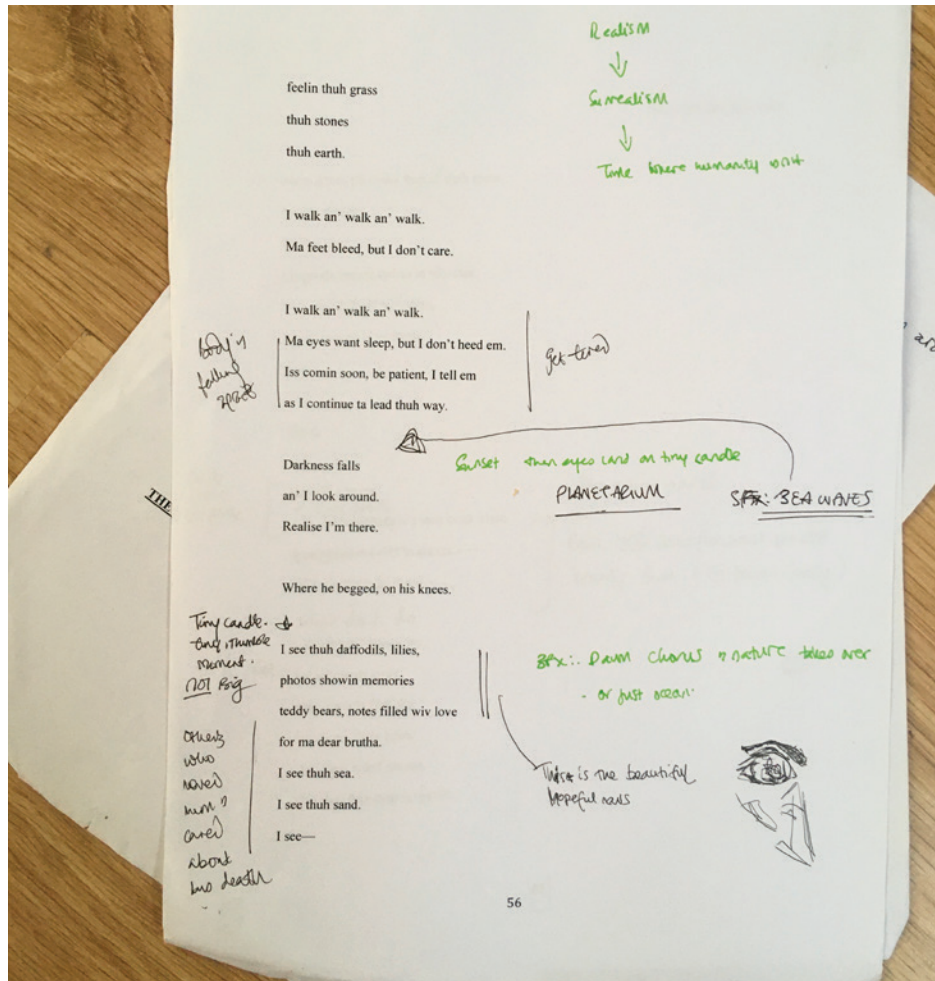 Realism
Surrealism
Time where humanity isnt
feelin thuh grass
thuh stones
thuh earth.
I walk an' walk an' walk.
Ma feet bleed, but I don't care.
I walk an' walk an' walk.
Ma eyes want sleep, but I don't heed em.
Iss comin soon, be patient, I tell em
as I continue ta lead thuh way.
body's
falling
apart
get tired
Sunset then eyes land on tiny candle
Darkness falls
an' I look around.
Realise I'm there.
PLANETARIUM
SFX: SEA WAVES
THE
Where he begged, on his knees.
Tiny candle.
tiny, humble
moment.
NOT Big
I see thuh daffodils, lilies,
photos showin memories
teddy bears, notes filled wiv love
for ma dear brutha.
I see thuh sea.
I see thuh sand.
I see—
SFX: Dawn chorus nature takes over
- or just ocean.
others
who
loved
him?
cared
about
his death
This is the beautiful
hopeful
56